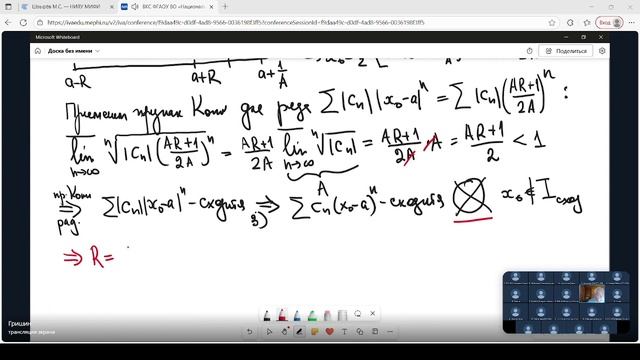 Шмырёв М.С. — НИЯУ МИФИ
ВКС ФГАОУ ВО «Национал
https://ivaedu.mephi.ru/v2/iva/conference/f9daaf9c-d0df-4ad8-9566-0036198f3ff5?conferenceSessionId=f9daaf9c-d0df-4ad8-9566-0036198f3ff5
Вход
Microsoft Whiteboard
Доска без имени
Поделиться
a-R a+R a+1/A
Применим признак Коши для ряда ∑|Cn||x₀-a|ⁿ = ∑|Cn|((AR+1)/2A)ⁿ :
lim n→∞ ⁿ√(|Cn|((AR+1)/2A)ⁿ) = (AR+1)/2A lim n→∞ ⁿ√|Cn| = (AR+1)/2A · A = (AR+1)/2 < 1
A
пр. Коши ⇒ рад. ∑|Cn||x₀-a|ⁿ - сходится ⇒ 3) ∑ Cn(x₀-a)ⁿ - сходится x₀ ∉ I сход
⇒ R=
Гришин
трансляция экрана